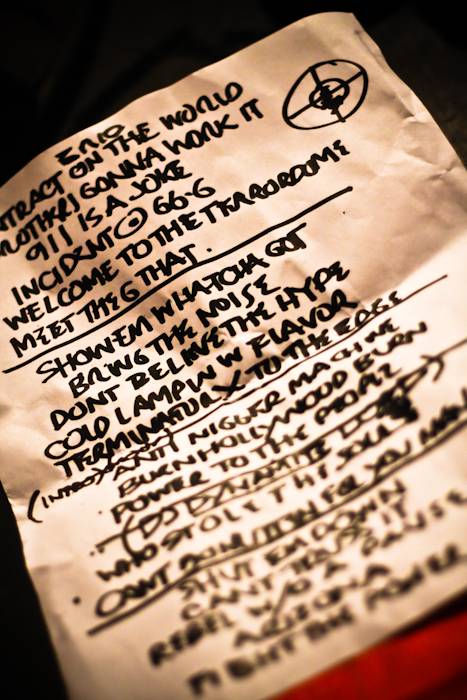 NTRACT ON THE WORLD
GONNA WORK IT
911 IS A JOKE
INCIDENT @ 66-6
WELCOME TO THE TERRORDOME
MEET THE G THAT.
SHOW EM WHATCHA GOT
BRING THE NOISE
DONT BELIEVE THE HYPE
COLD LAMPIN W FLAVOR
TERMINATOR X TO THE EDGE
(INTRO) ANTI NIGGER MACHINE
BURN HOLLYWOOD BURN
POWER TO THE PEOPLE
(DJ DYNAMITE
WHO STOLE THE SOUL
CANT DO NUTTIN FOR YOU MAN
SHUT EM DOWN
CANT TRUSS IT
REBEL W/O A PAUSE
ARIZONA
FIGHT THE POWER